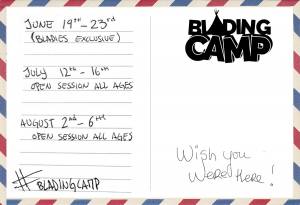 JUNE 19TH - 23RD
(BLADIES EXCLUSIVE)
JULY 12TH - 16TH
OPEN SESSION ALL AGES
AUGUST 2ND - 6TH
OPEN SESSION ALL AGES
#BLADINGCAMP
BLADING
CAMP
Wish you
Were Here!